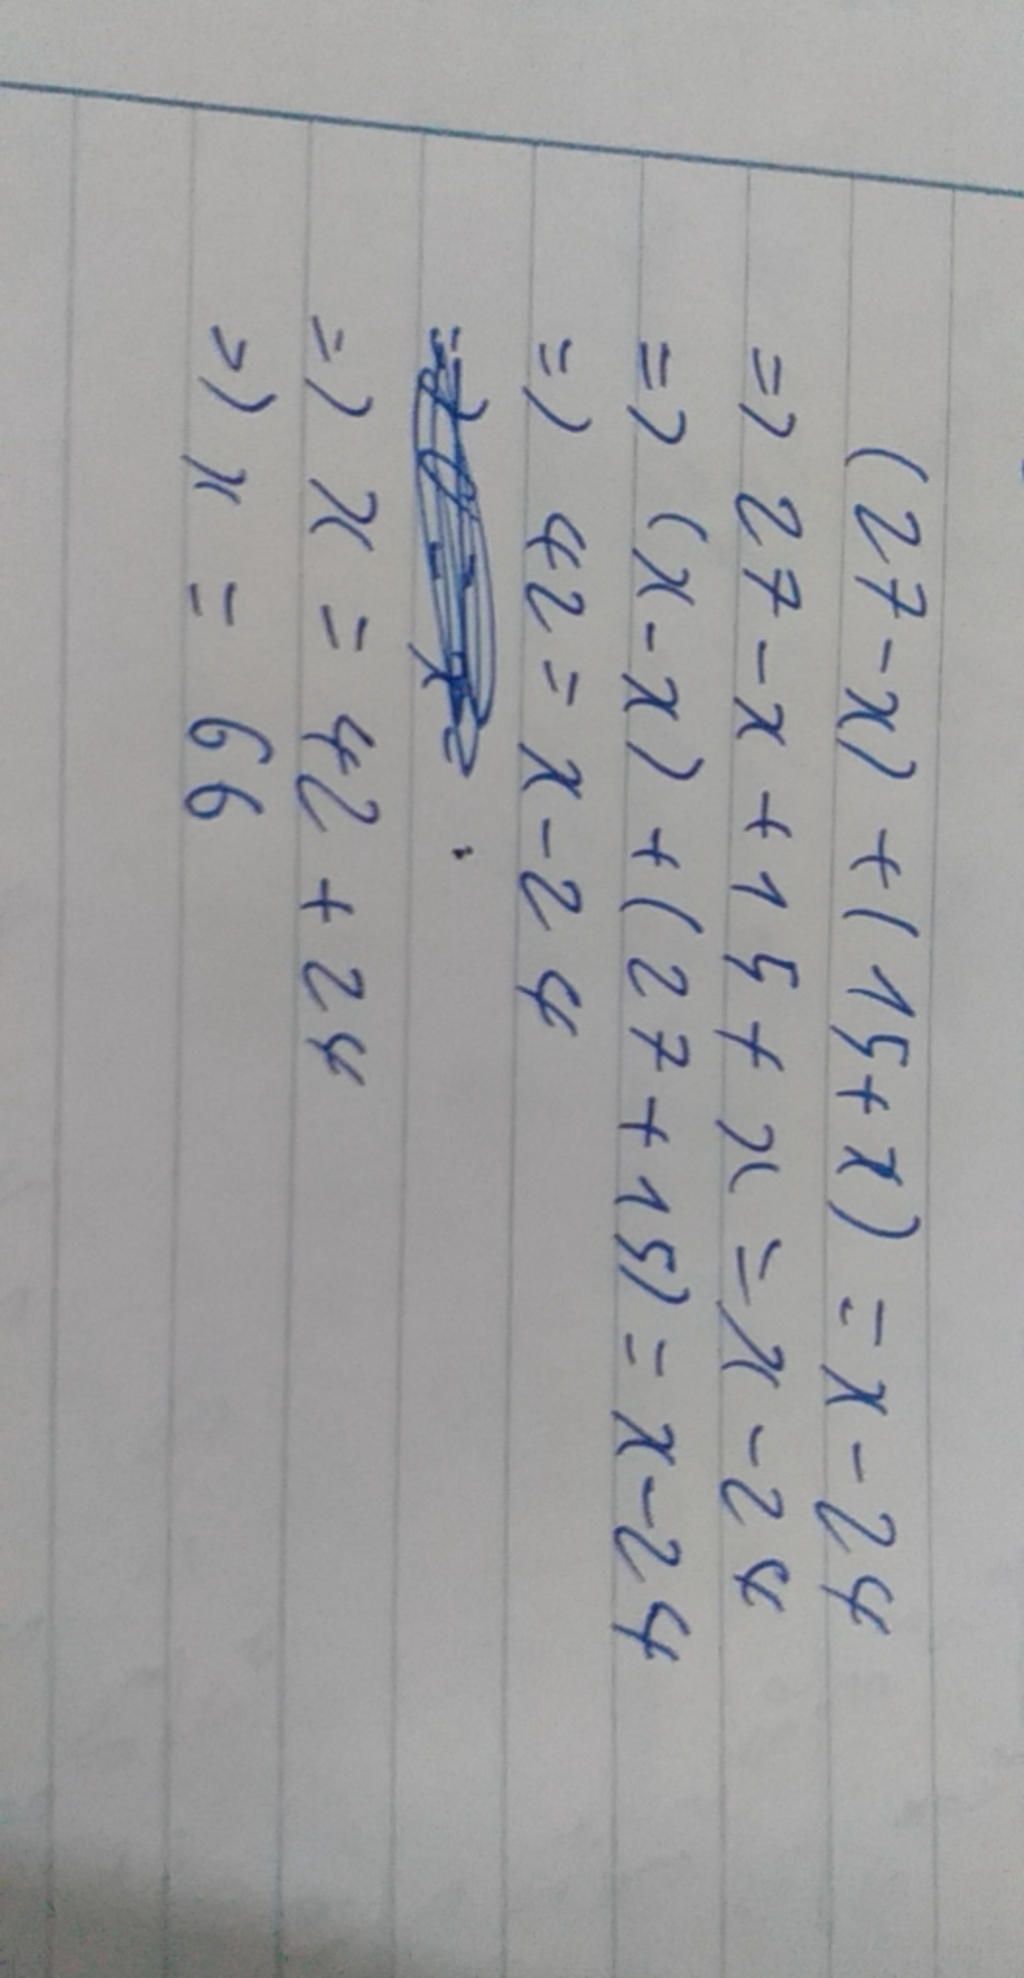 (27-x)+(15+x)=x-24
=> 27-x+15+x=x-24
=> (x-x)+(27+15)=x-24
=> 42=x-24
=> x=42+24
=> x=66